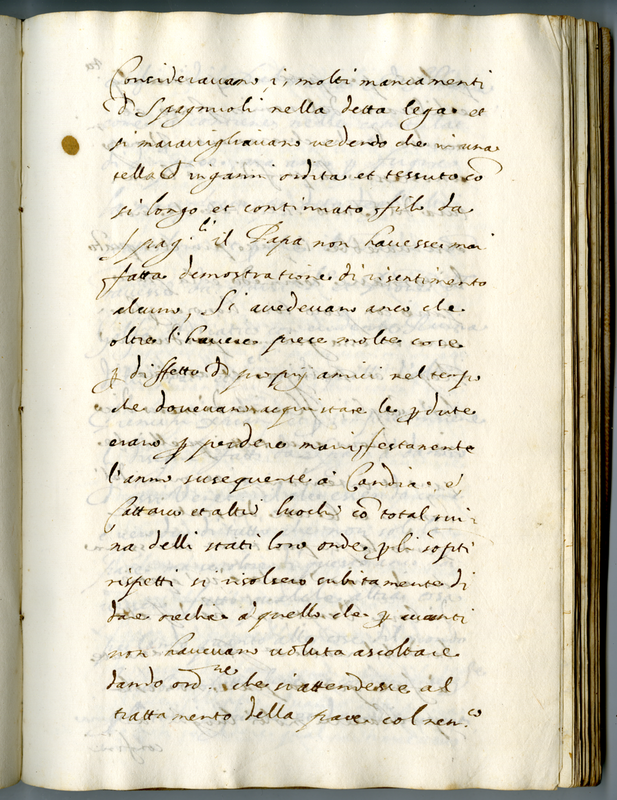 Considerauano, i molti mancamenti
d Spagnuoli nella detta lega et
si marauigliauano uedendo che in una
tella d inganni ordita et tessuta cõ
si longo et continuato filo da
Spag.li il Papa non hauesse mai
fatta demostratione di risentimento
alcuno, Si auedeuano anco che
oltre l'hauere perse molte cose
p diffetto d proprij amici nel tempo
che doueuano acquistare le p dute
erano p perdere manifestamente
l'anno susequente à Candia e
Cattaro et altri luochi cõ total rui
na delli stati loro onde p li sõp.ti
rispetti si risolsero subitamente di
dare orechie à quello che p auanti
non haueuano uoluto ascoltare
dando ord.ne che si attendesse al
trattamento della pace col nem.co